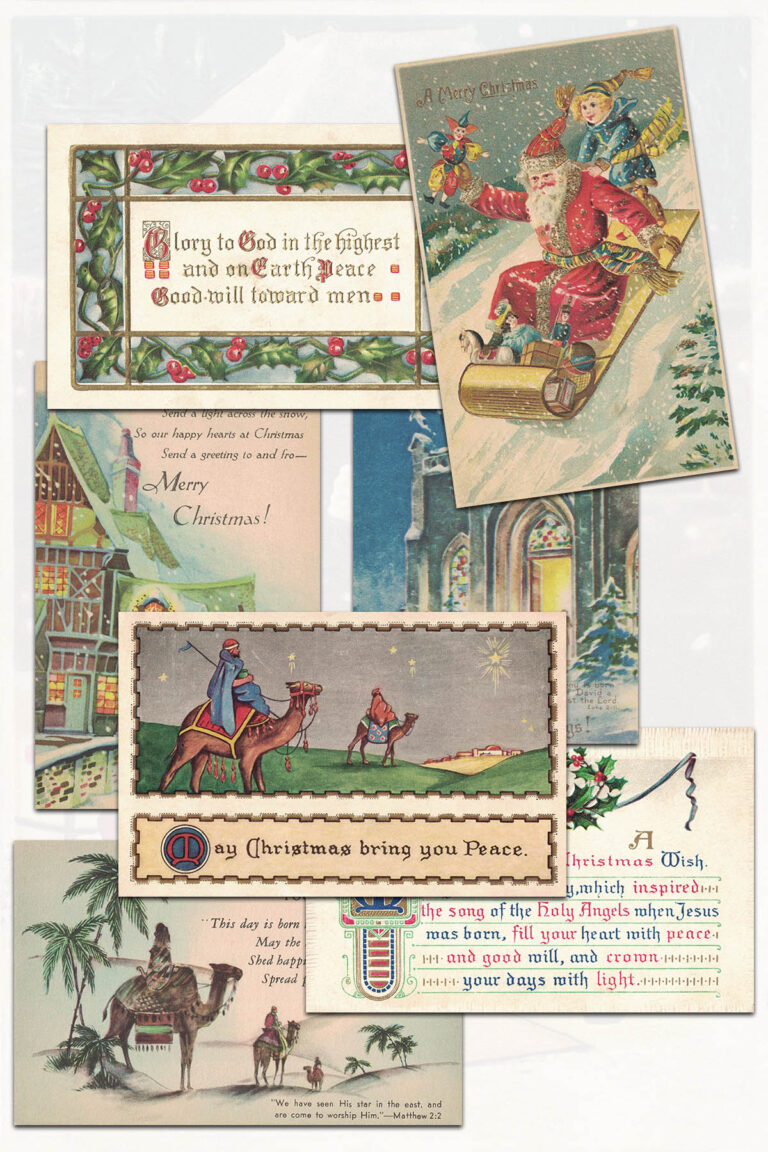 A Merry Christmas
Glory to God in the highest
and on Earth Peace
Good-will toward men
Send a light across the snow,
So our happy hearts at Christmas
Send a greeting to and fro—
Merry
Christmas!
born
David a
st the Lord.
Luke 2:11
gs!
May Christmas bring you Peace.
A
Christmas Wish.
y, which inspired
the song of the Holy Angels when Jesus
was born, fill your heart with peace
and good will, and crown
your days with light.
"This day is born
May the
Shed happi
Spread
"We have seen His star in the east, and
are come to worship Him."—Matthew 2:2